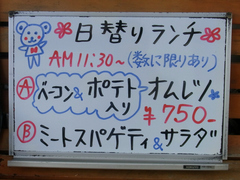 日替りランチ
AM11:30~(数に限りあり)
Ⓐ ベーコン&ポテト入り オムレツ
¥750-
Ⓑ ミートスパゲティ&サラダ